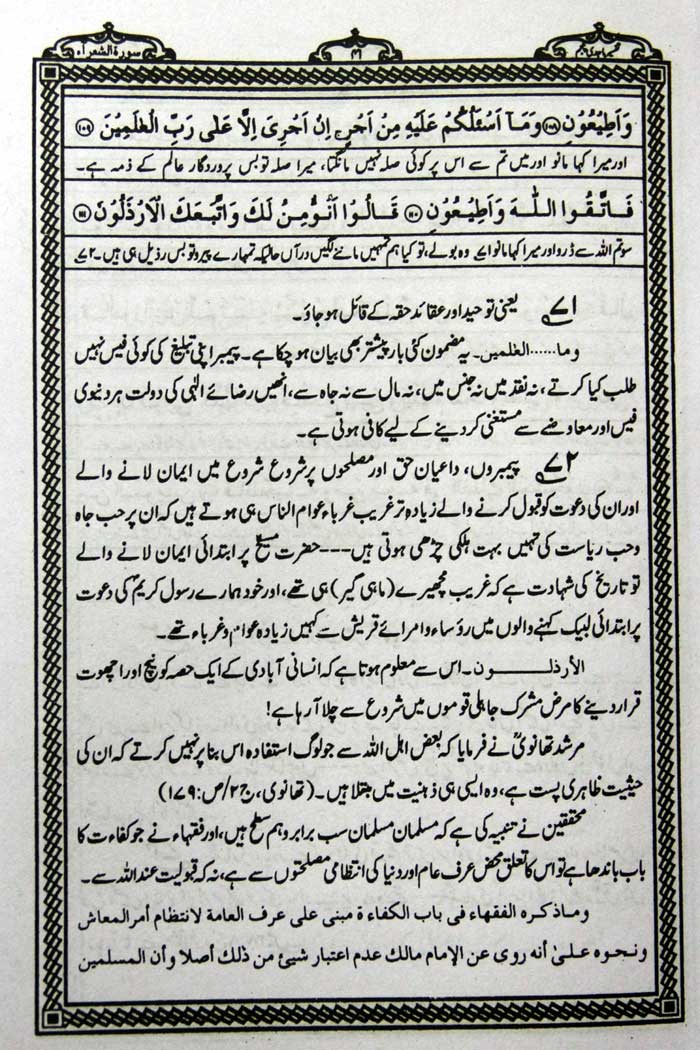 سورة الشعرآء
وَاَطِیْعُوْنِ ﴿۱۰۸﴾ وَمَاۤ اَسْـَٔلُكُمْ عَلَیْهِ مِنْ اَجْرٍ ۚ اِنْ اَجْرِیَ اِلَّا عَلٰی رَبِّ الْعٰلَمِیْنَ ﴿۱۰۹﴾
اور میرا کہا مانو اور میں تم سے اس پر کوئی صلہ نہیں مانگتا، میرا صلہ تو بس پروردگار عالم کے ذمہ ہے۔
فَاتَّقُوا اللّٰهَ وَاَطِیْعُوْنِ ﴿۱۱۰﴾ قَالُوْۤا اَنُؤْمِنُ لَكَ وَاتَّبَعَكَ الْاَرْذَلُوْنَ ﴿۱۱۱﴾
سو تم اللہ سے ڈرو اور میرا کہا مانو ۷۱ وہ بولے، تو کیا ہم تمہیں ماننے لگیں درآں حالیکہ تمہارے پیرو تو بس رذیل ہی ہیں۔ ۷۲
۷۱ یعنی توحید اور عقائد حقہ کے قائل ہو جاؤ۔
وما.....العٰلمین۔ یہ مضمون کئی بار پیشتر بھی بیان ہو چکا ہے۔ پیمبر اپنی تبلیغ کی کوئی فیس نہیں
طلب کیا کرتے، نہ نقد میں نہ جنس میں، نہ مال سے نہ جاہ سے، انھیں رضائے الٰہی کی دولت ہر دنیوی
فیس اور معاوضے سے مستغنی کر دینے کے لیے کافی ہوتی ہے۔
۷۲ پیمبروں، داعیان حق اور مصلحوں پر شروع شروع میں ایمان لانے والے
اور ان کی دعوت کو قبول کرنے والے زیادہ تر غریب غرباء عوام الناس ہی ہوتے ہیں کہ ان پر حب جاہ
وحب ریاست کی تہیں بہت ہلکی چڑھی ہوتی ہیں---حضرت مسیحؑ پر ابتدائی ایمان لانے والے
تو تاریخ کی شہادت ہے کہ غریب مچھیرے (ماہی گیر) ہی تھے، اور خود ہمارے رسول کریمؐ کی دعوت
پر ابتدائی لبیک کہنے والوں میں رؤساء وامرائے قریش سے کہیں زیادہ عوام وغرباء تھے۔
الأرذلــــــون۔ اس سے معلوم ہوتا ہے کہ انسانی آبادی کے ایک حصہ کو نیچ اور اچھوت
قرار دینے کا مرض مشرک جاہلی قوموں میں شروع سے چلا آ رہا ہے!
مرشد تھانویؒ نے فرمایا کہ بعض اہل اللہ سے جو لوگ استفادہ اس بنا پر نہیں کرتے کہ ان کی
حیثیت ظاہری پست ہے، وہ ایسی ہی ذہنیت میں مبتلا ہیں۔ (تھانوی، ج۲/ص:۱۷۹)
محققین نے تنبیہ کی ہے کہ مسلمان مسلمان سب برابر و ہم سطح ہیں، اور فقہاء نے جو کفاءت کا
باب باندھا ہے تو اس کا تعلق محض عرف عام اور دنیا کی انتظامی مصلحتوں سے ہے، نہ کہ قبولیت عند اللہ سے۔
وماذكره الفقهاء في باب الكفاءة مبني على عرف العامة لانتظام أمرالمعاش
ونحوه علىٰ أنه روي عن الإمام مالك عدم اعتبار شيئ من ذلك أصلا وأن المسلمين